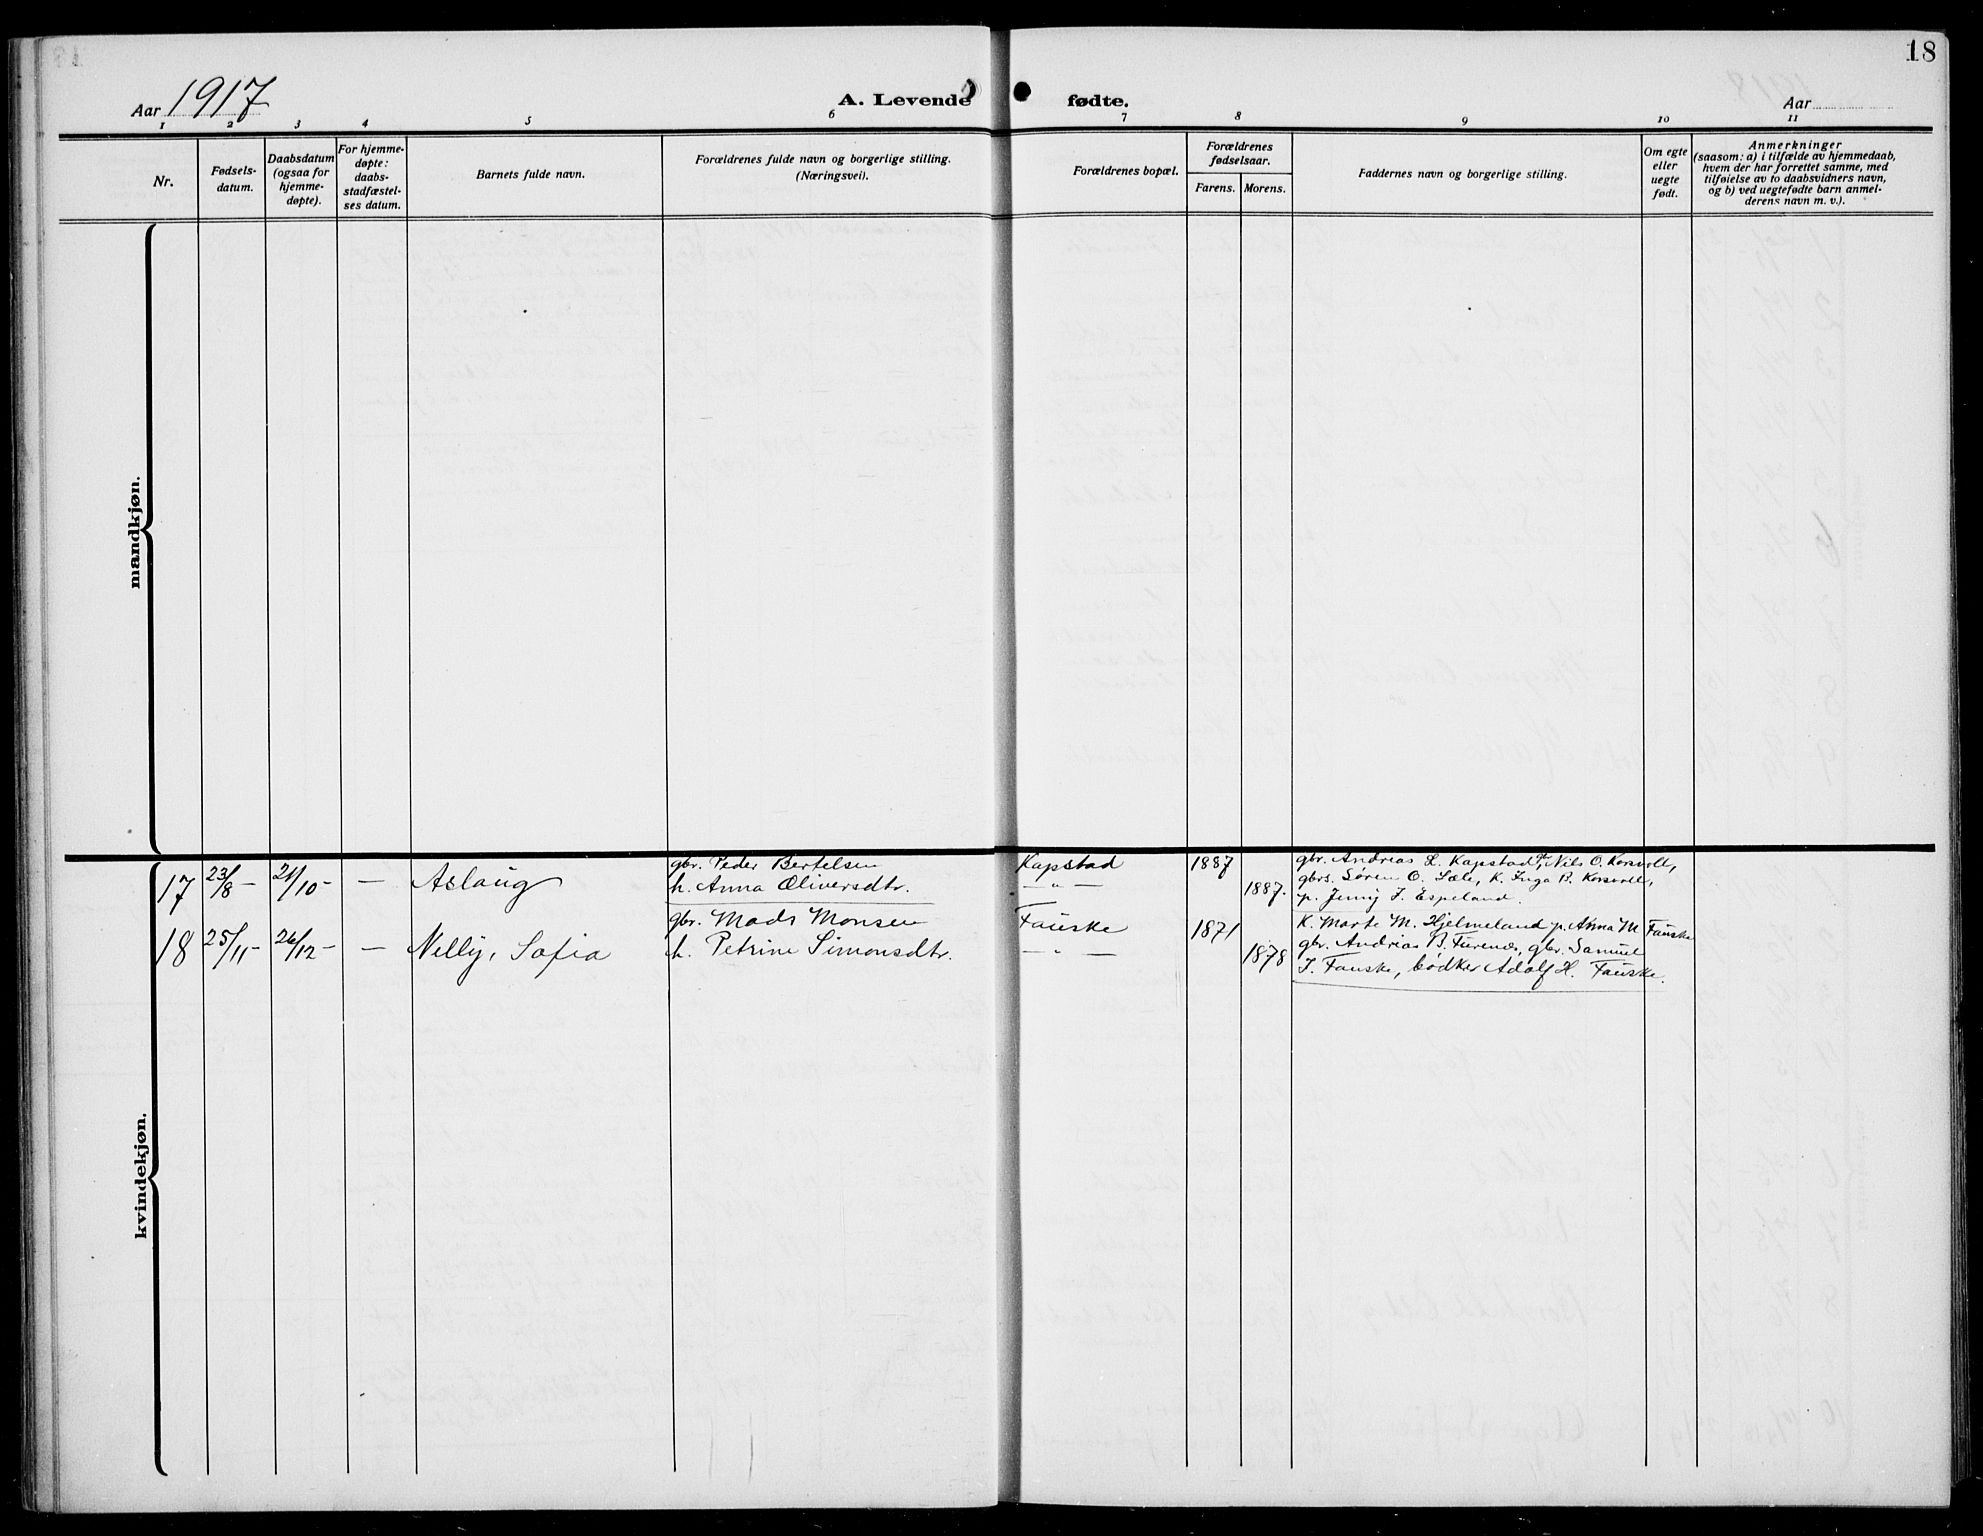 18
Aar 1917
A. Levende fødte.
Aar
1 2 3 4 5 6 7 8 9 10 11
Nr.
Fødsels-
datum.
Daabsdatum
(ogsaa for
hjemme-
døpte).
For hjemme-
døpte:
daabs-
stadfæstel-
ses datum.
Barnets fulde navn.
Forældrenes fulde navn og borgerlige stilling.
(Næringsvei).
Forældrenes bopæl.
Forældrenes
fødselsaar.
Farens. Morens.
Faddernes navn og borgerlige stilling.
Om egte
eller
uegte
født.
Anmerkninger
(saasom: a) i tilfælde av hjemmedaab,
hvem der har forrettet samme, med
tilføielse av to daabsvidners navn,
og b) ved uegtefødte barn anmel-
derens navn m. v.).
mandkjøn.
kvindekjøn.
17 23/8- 21/10- — Aslaug
gbr. Peder Bertelsen
h. Anna Oliversdtr.
Kapstad
— " —
1887
1887.
gbr. Andreas L. Kapstad, Nils O. Korsvoll,
gbrs. Søren O. Sæle, K. Inga B. Korsvoll,
p. Jenny J. Espeland.
18 25/11- 26/12- — Nelly, Sofia
gbr. Mads Monsen
h. Petrine Simonsdtr.
Fauske
— " —
1871
1878
K. Marte M. Hjelmeland p. Anna M Fauske
gbr. Andrias B. Furenes, gbr. Samuel
J. Fauske, bødker Adolf H. Fauske.